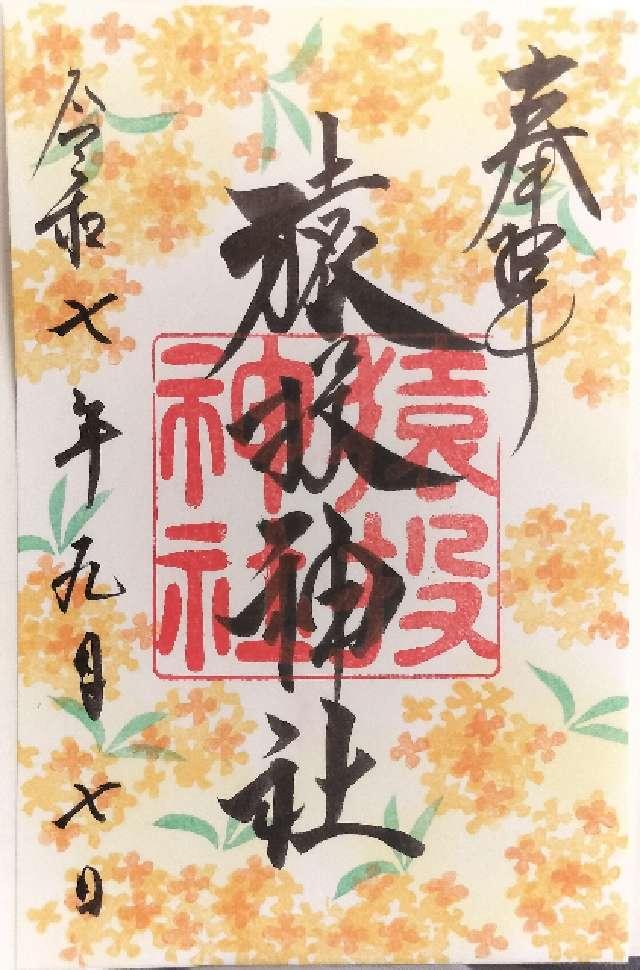 奉拝
猿投神社
猿投
神社
令和七年九月七日